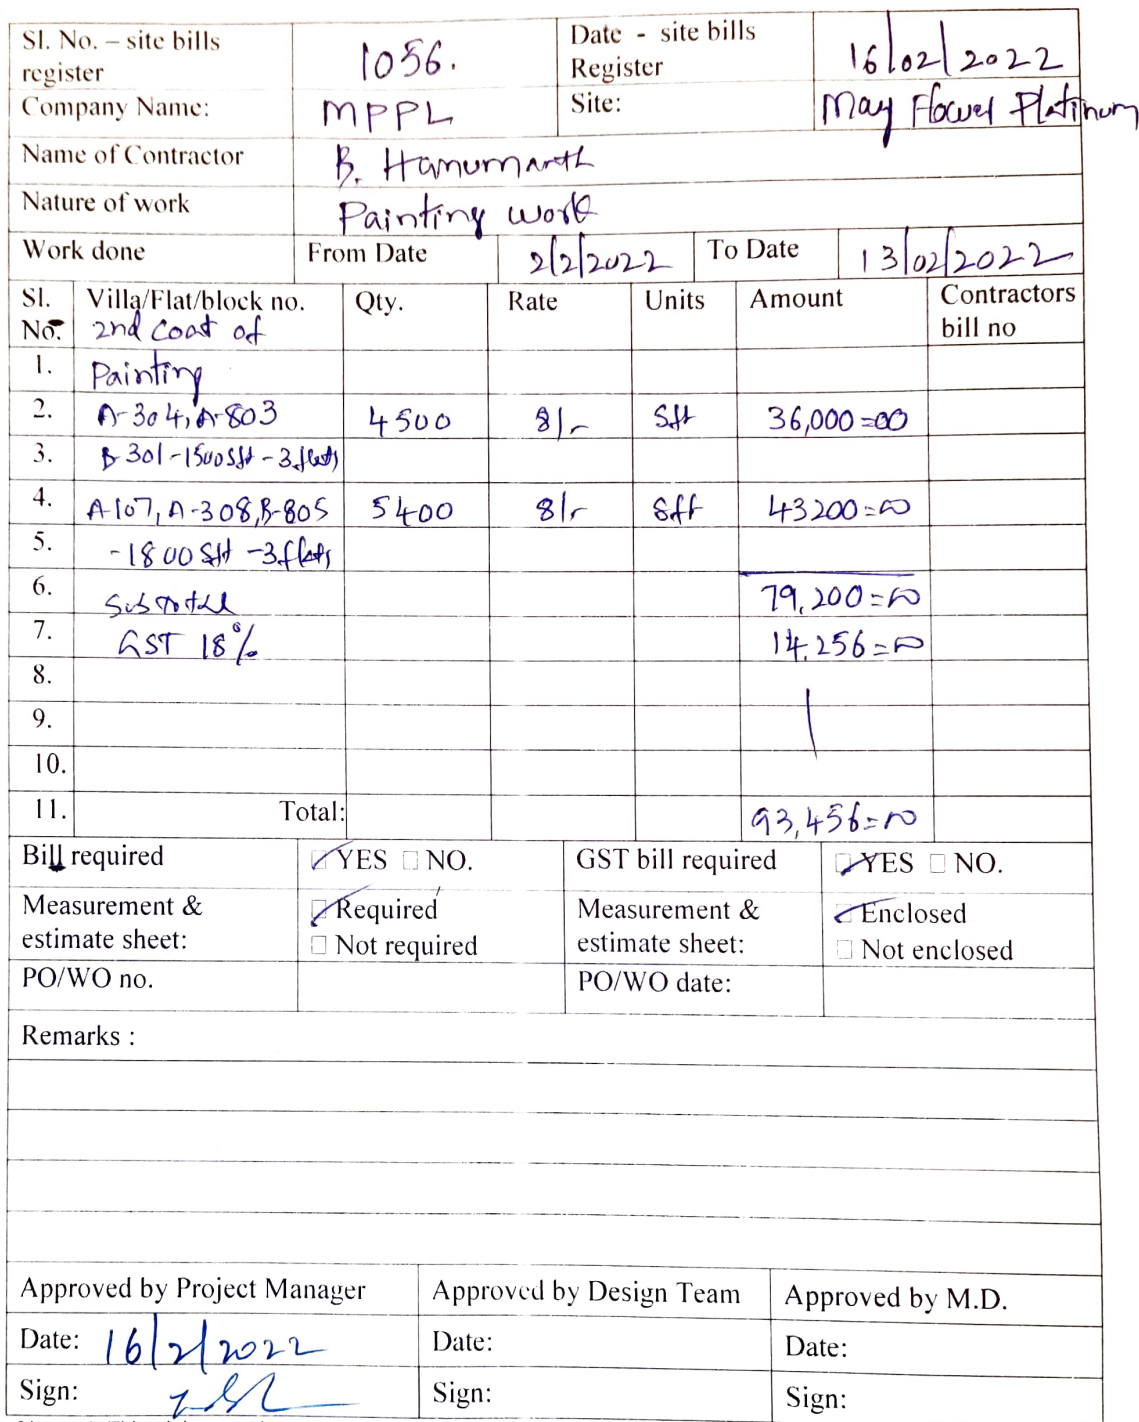 Sl. No. – site bills register 1056. Date - site bills Register 16/02/2022
Company Name: MPPL Site: May Flower Platinum
Name of Contractor B. Hanumanth
Nature of work Painting work
Work done From Date 2/2/2022 To Date 13/02/2022
Sl. No. Villa/Flat/block no. Qty. Rate Units Amount Contractors bill no
2nd coat of
1. Painting
2. A-304, A-803 4500 8/- Sft 36,000=00
3. B-301-1500Sft-3flats
4. A-107, A-308, B-805 5400 8/- Sft 43200=00
5. -1800 Sft -3flats
6. Sub Total 79,200=00
7. GST 18% 14,256=00
8.
9.
10.
11. Total: 93,456=00
Bill required YES NO. GST bill required YES NO.
Measurement & estimate sheet: Required Not required Measurement & estimate sheet: Enclosed Not enclosed
PO/WO no. PO/WO date:
Remarks :
Approved by Project Manager Approved by Design Team Approved by M.D.
Date: 16/2/2022 Date: Date:
Sign: Sign: Sign: